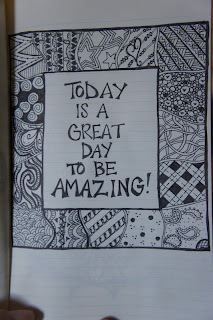 TODAY
IS A
GREAT
DAY
TO BE
AMAZING!